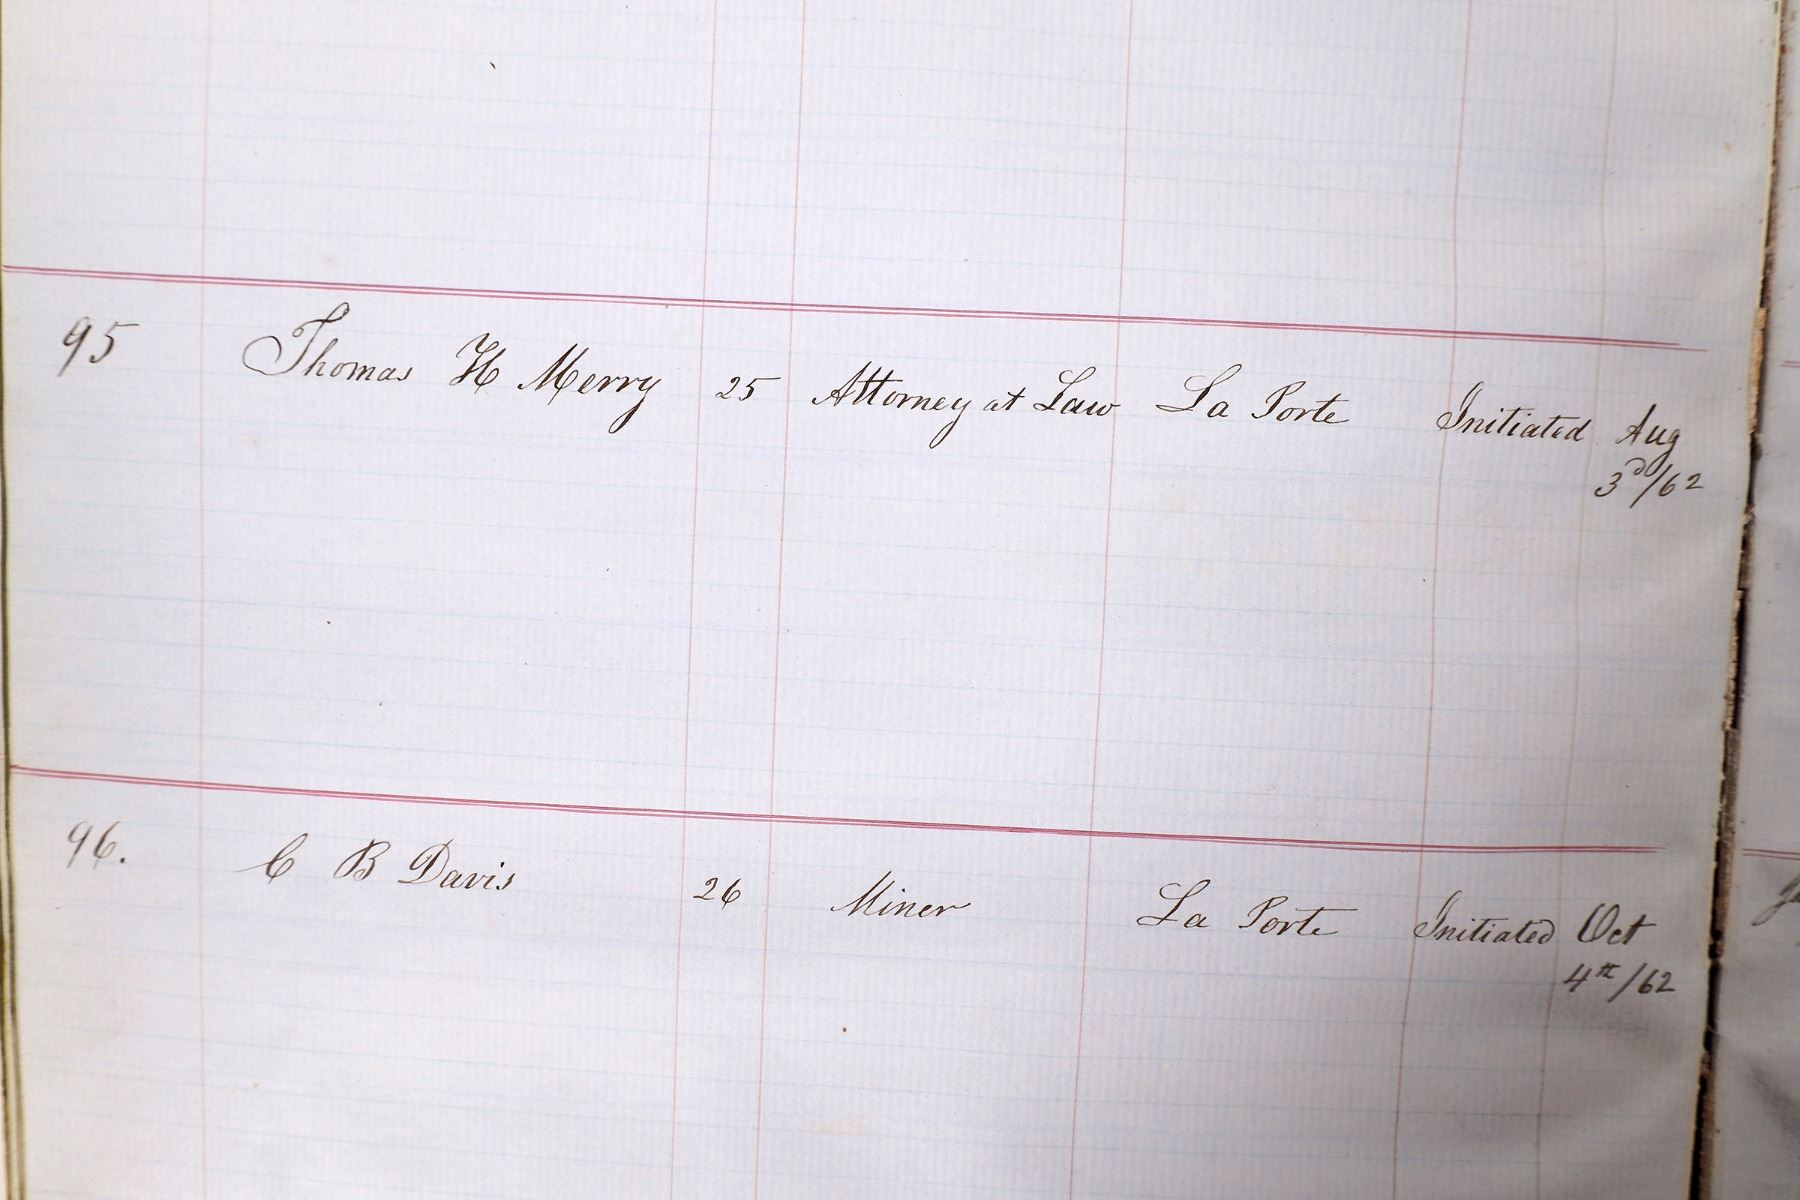 95 Thomas H Merry 25 Attorney at Law La Porte Initiated Aug
3d/62
96. C B Davis 26 Miner La Porte Initiated Oct
4th/62